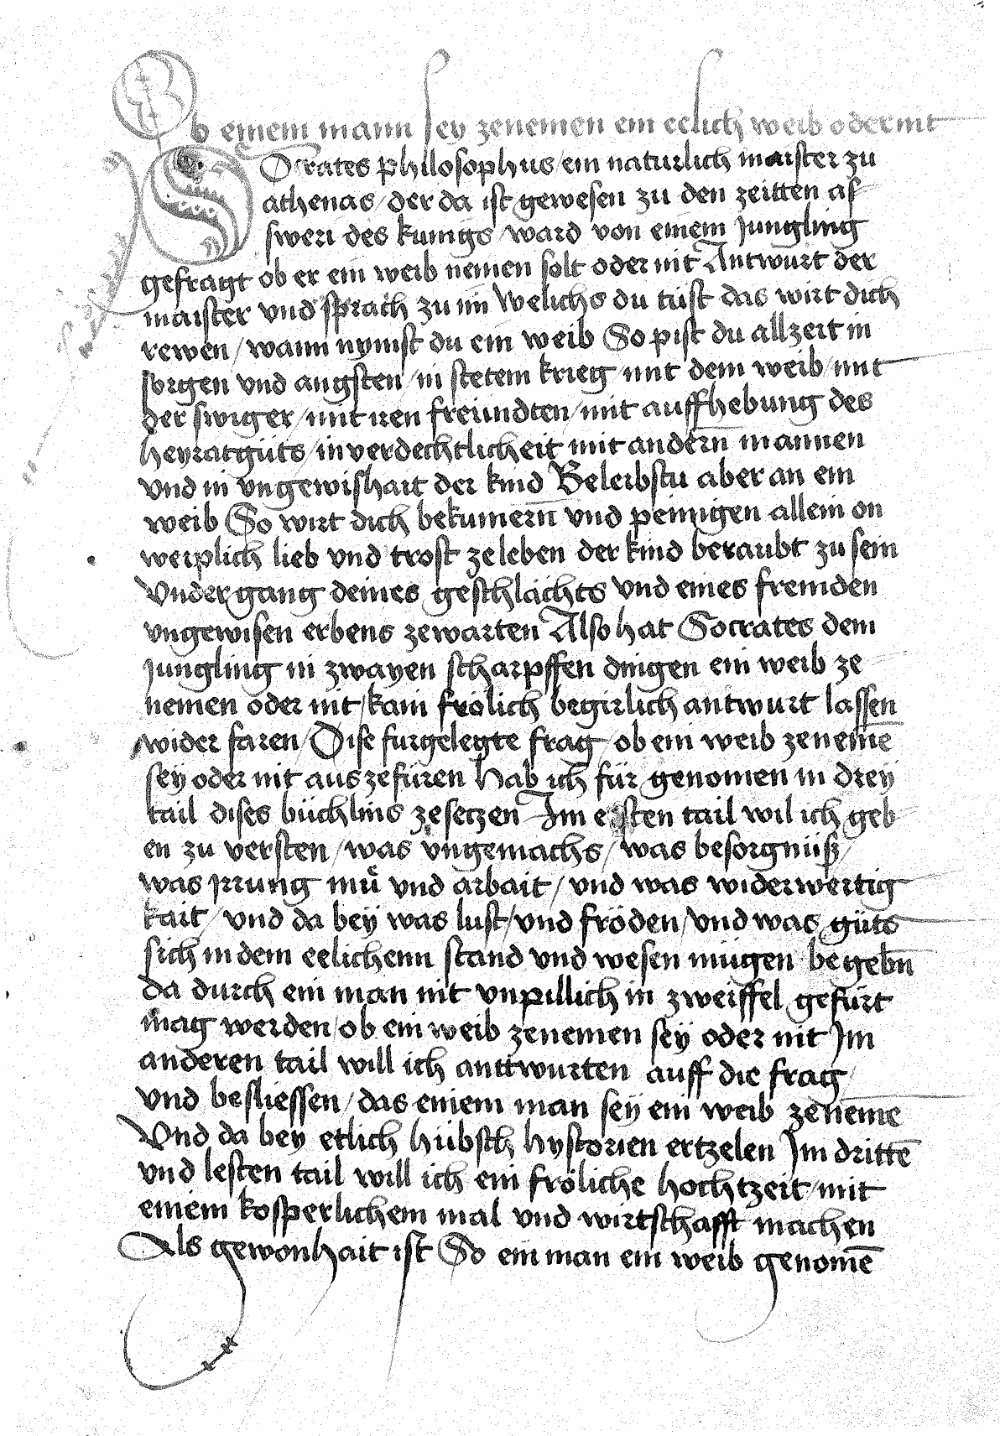 Ob einem mann sey zenemen ein eelich weib oder nit
Socrates philosophus / ein naturlich maister zu
athenas / der da ist gewesen zu den zeitten as-
sweri des kunigs / ward von einem Jungling
gefragt ob er ein weib nemen solt oder nit Antwurt der
maister vnd sprach zu im Welichs du tust das wirt dich
rewen / wann nymst du ein weib So pist du allzeit in
sorgen vnd angsten / in stetem krieg / mit dem weib / mit
der swiger / mit iren freundten / mit auffhebung des
heyratgüts / in verdechtlicheit mit andern mannen
vnd in vngewishait der kind Beleibstu aber an ein
weib So wirt dich bekumern̄ vnd peinigen allein on
weiplich lieb vnd trost zeleben der kind beraubt zu sein
Vndergang deines geschlächts vnd eines fremden
vngewisen erbens zewarten Also hat Socrates dem
Jungling in zwayen scharpffen dingen ein weib ze
nemen oder nit / kain frölich begirlich antwurt lassen
wider faren / Dise furgelegte frag ob ein weib zenemē
sey oder nit auszefüren hab ich für genomen in drey
tail dises büchlins zesetzen Im ersten tail wil ich geb-
en zu versten / was vngemachs / was besorgnüß /
was jrrung mü vnd arbait / vnd was widerwertig
kait / vnd da bey was lust / vnd fröden / vnd was güts
sich in dem eelichenn stand vnd wesen mügen begebn̄
da durch ein man nit vnpillich in zweiffel gefürt
mag werden / ob ein weib zenemen sey oder nit Im
anderen tail will ich anttwurten auff die frag /
vnd besliessen / das einem man sey ein weib zenemē
Vnd da bey etlich hübsch hystorien ertzelen Im drittē
vnd lesten tail will ich ein fröliche hochtzeit / mit
einem kosperlichem mal vnd wirtschafft machen
Als gewonhait ist So ein man ein weib genomē